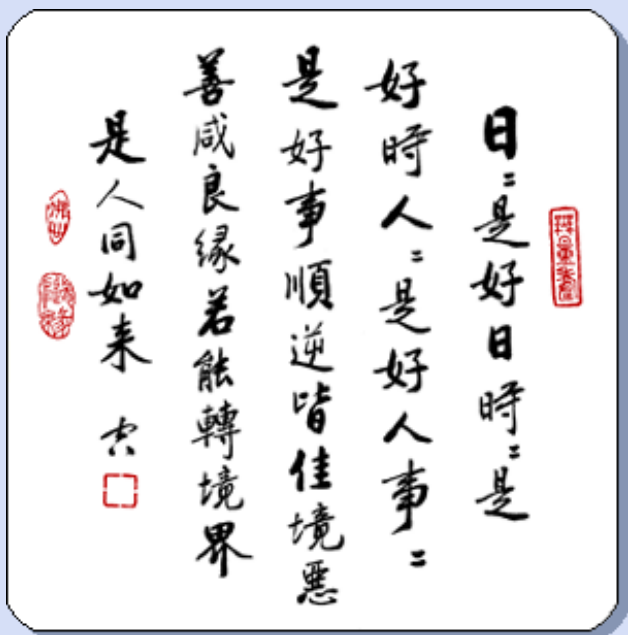 日〻是好日時〻是
好時人〻是好人事〻
是好事順逆皆佳境惡
善咸良緣若能轉境界
是人同如来
無量壽